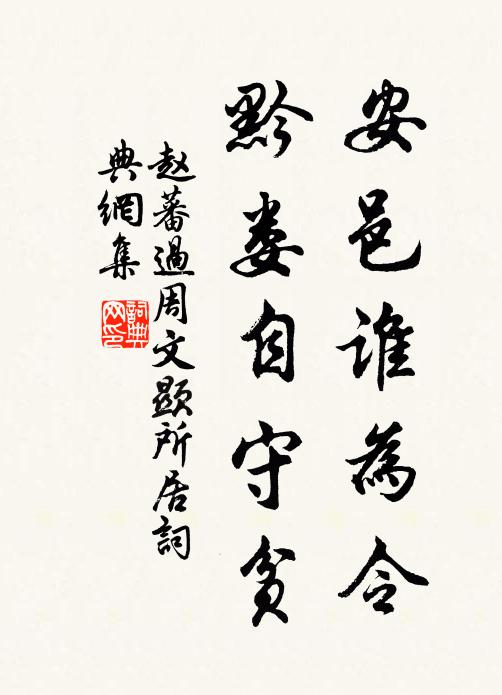 安邑誰為令
黔婁自守貧
赵蕃過周文顯所居詞
典網集
詞典網印